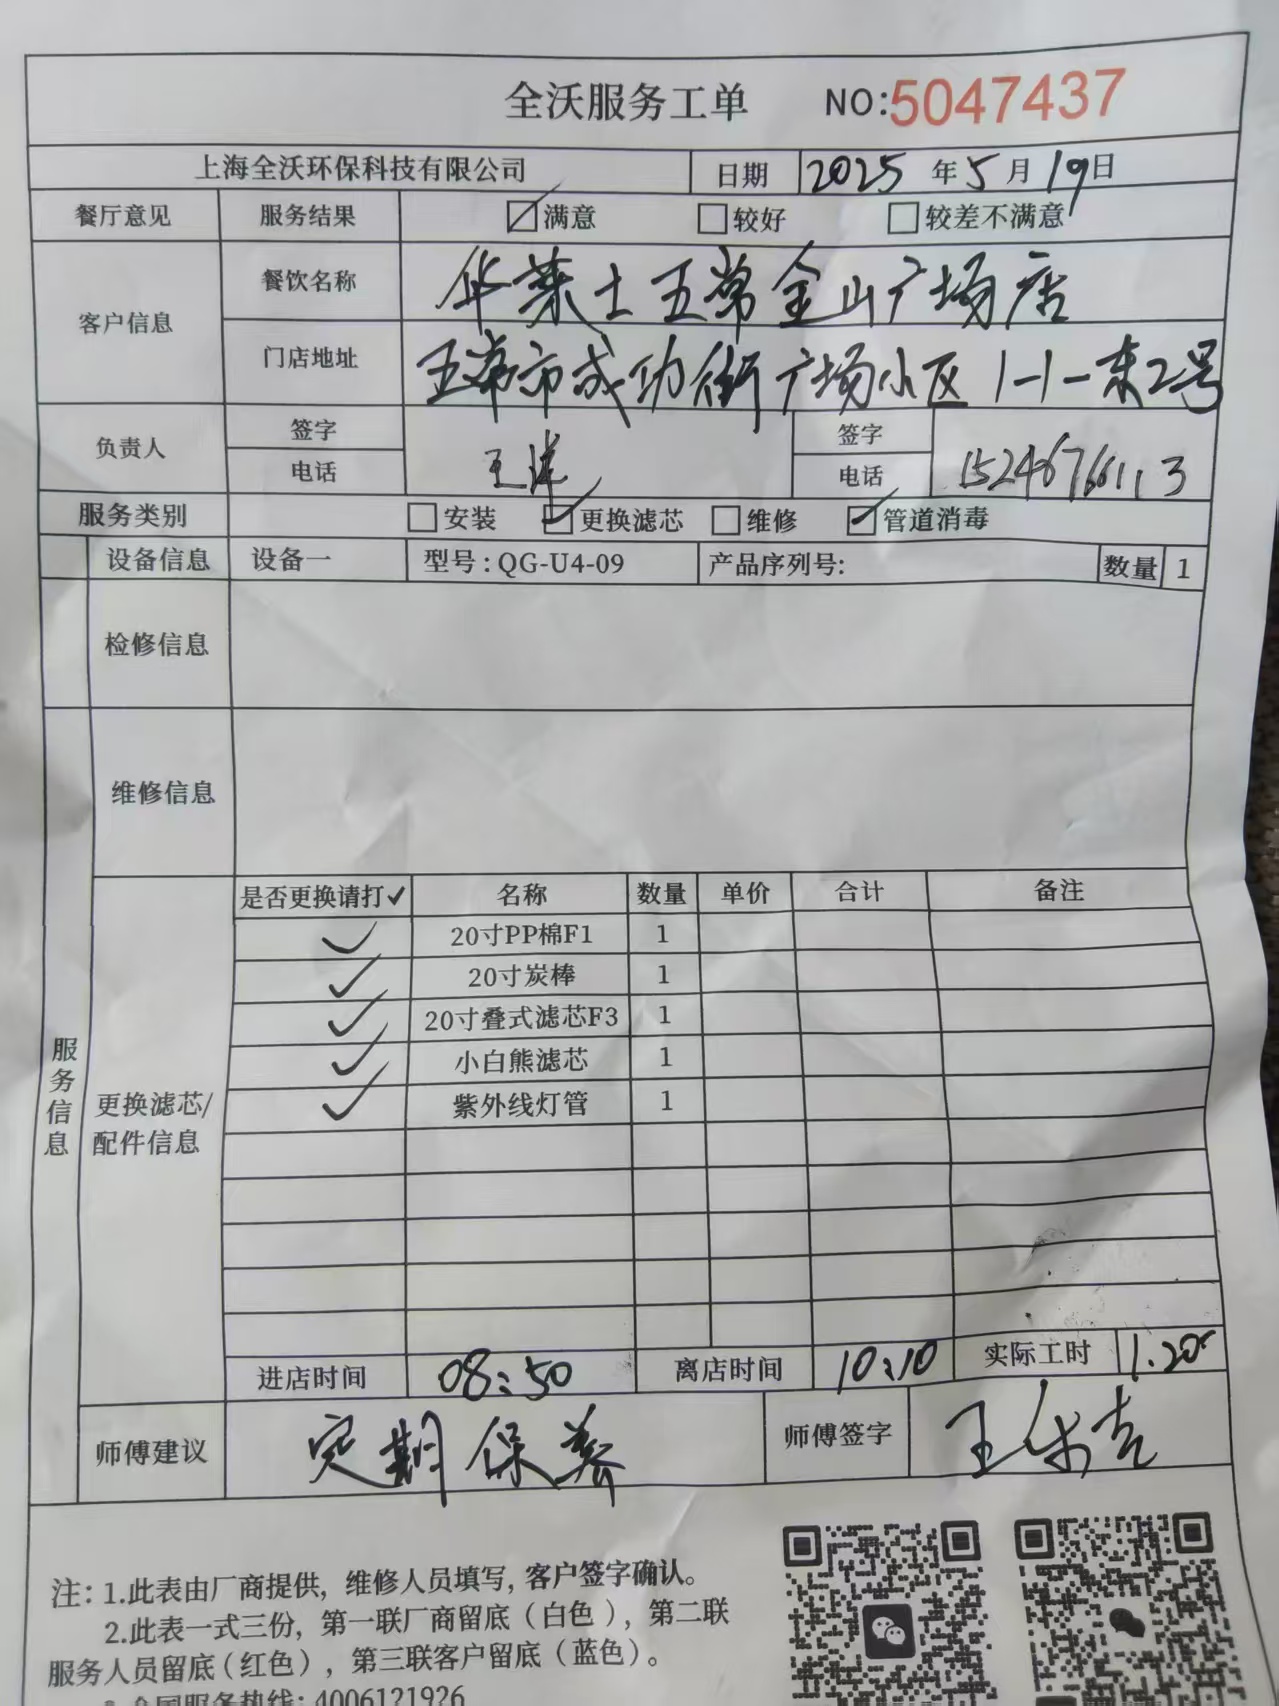 全沃服务工单 NO:5047437
上海全沃环保科技有限公司 日期 2025 年 5 月 19 日
餐厅意见 服务结果 满意 较好 较差不满意
客户信息 餐饮名称 华莱士五常金山广场店
门店地址 五常市成功街广场小区1-1-东2号
负责人 签字 王洋 签字
电话 电话 15246766113
服务类别 安装 更换滤芯 维修 管道消毒
设备信息 设备一 型号:QG-U4-09 产品序列号: 数量 1
检修信息
维修信息
服务信息
更换滤芯/配件信息
是否更换请打✓ 名称 数量 单价 合计 备注
✓ 20寸PP棉F1 1
✓ 20寸炭棒 1
✓ 20寸叠式滤芯F3 1
✓ 小白熊滤芯 1
✓ 紫外线灯管 1
进店时间 08:50 离店时间 10:10 实际工时 1.20
师傅建议 定期保养 师傅签字
注: 1.此表由厂商提供, 维修人员填写, 客户签字确认。
2.此表一式三份, 第一联厂商留底(白色), 第二联
服务人员留底(红色), 第三联客户留底(蓝色)。
全国服务热线: 4006121926